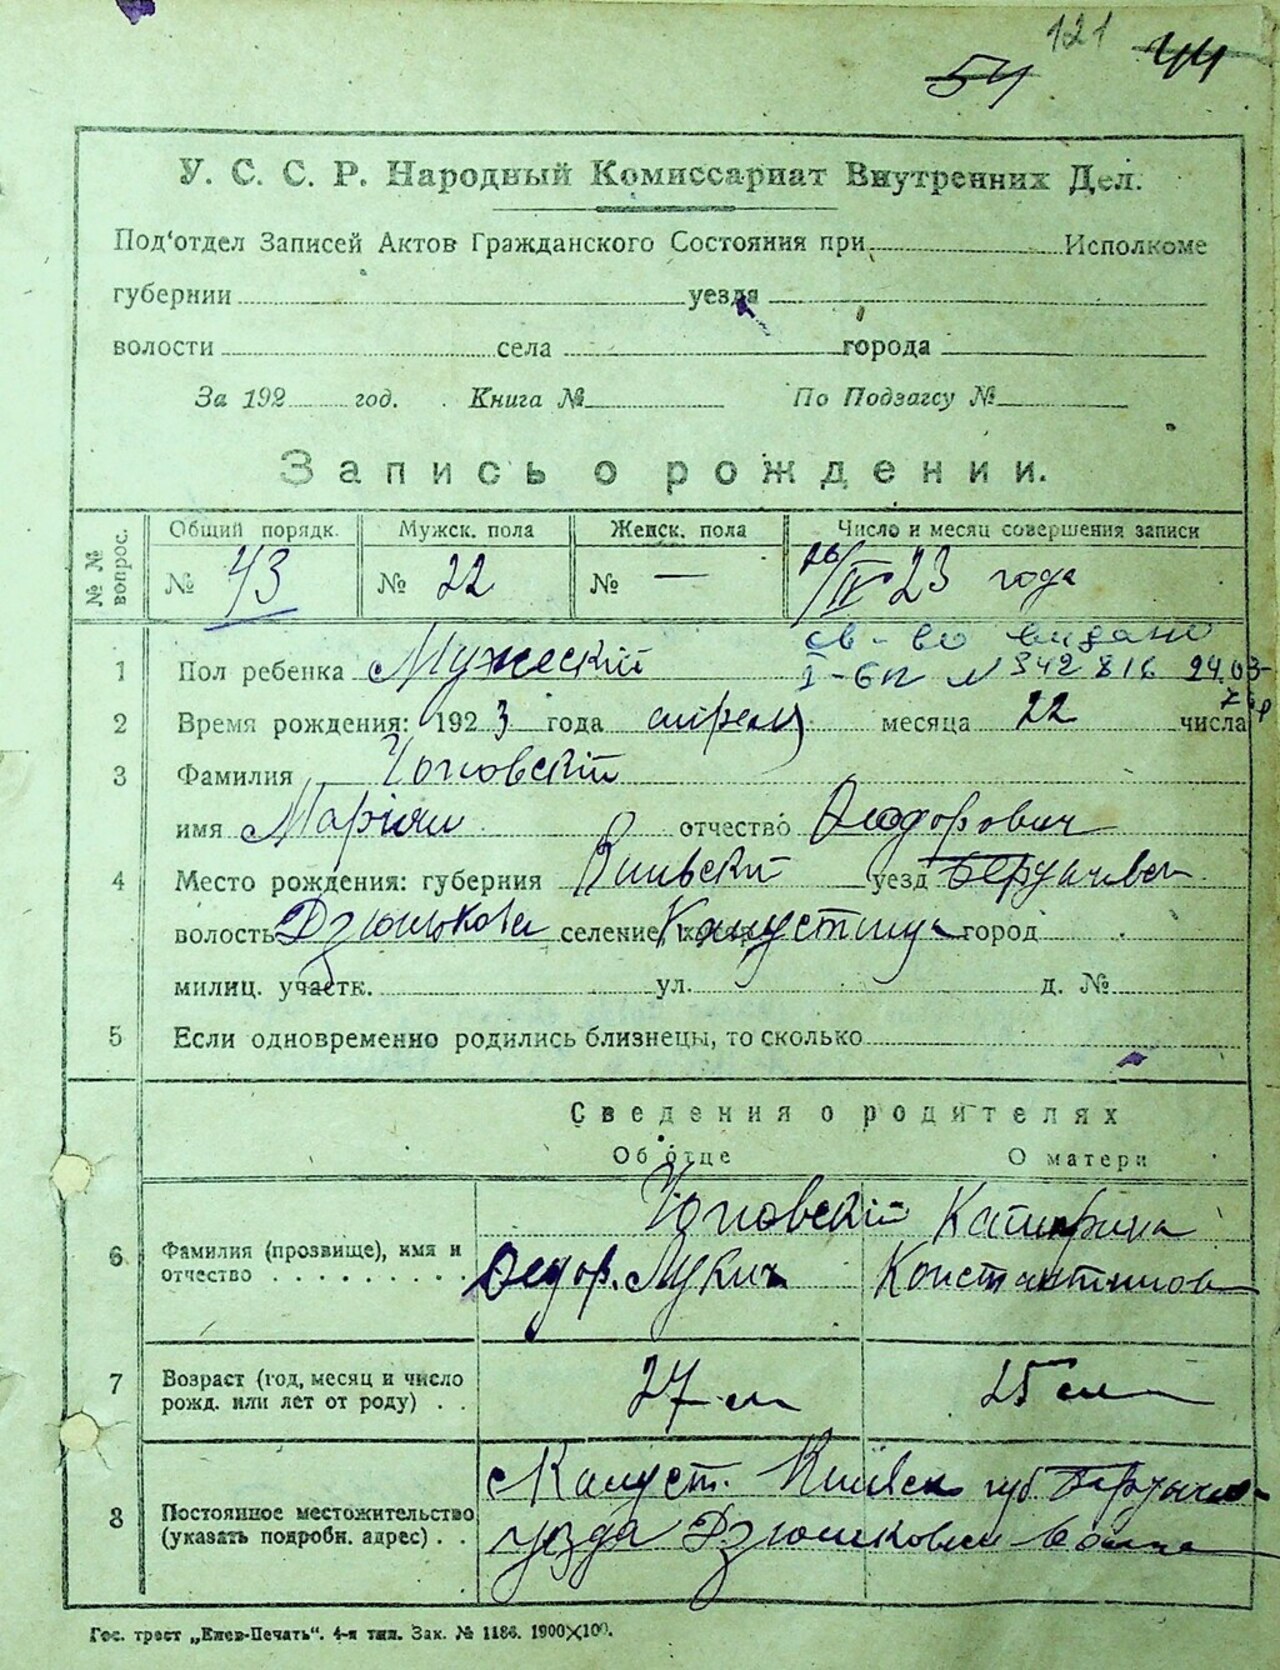 121 44
54
У. С. С. Р. Народный Комиссариат Внутренних Дел.
Под'отдел Записей Актов Гражданского Состояния при Исполкоме
губернии уезда
волости села города
За 192 год. Книга № По Подзагсу №
Запись о рождении.
№ № вопрос. Общий порядк. Мужск. пола Женск. пола Число и месяц совершения записи
№ 43 № 22 № — 26/IV 23 года
св-во видано
1 Пол ребенка Мужеский I-БП N 342816 24.03-
2 Время рождения: 1923 года апреля месяца 22 числа
3 Фамилия
имя Маріян отчество Феодорович
4 Место рождения: губерния уезд Бердичевск
волость селение, город
милиц. участк. ул. д. №
5 Если одновременно родились близнецы, то сколько
Сведения о родителях
Об отце О матери
6 Фамилия (прозвище), имя и отчество Катерина
Федор. Лукич Константинов
7 Возраст (год, месяц и число рожд. или лет от роду) 27 л 25 л
8 Постоянное местожительство (указать подробн. адрес) с Капуст. Київск губ Бердичев
уезда
Гос. трест „Киев-Печать“. 4-я тип. Зак. № 1186. 1900×100.